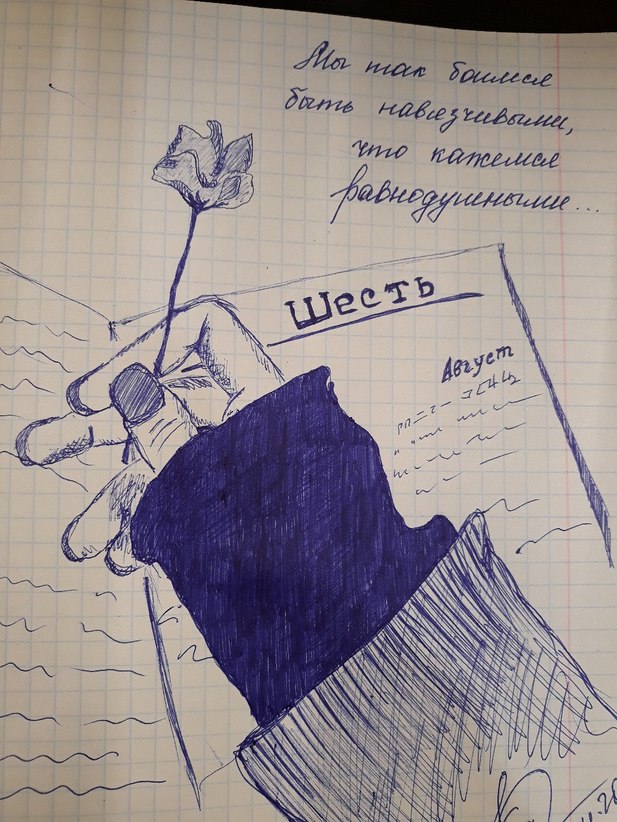 Мы так боимся
быть навязчивыми,
что кажемся
равнодушными...
Шесть
Август